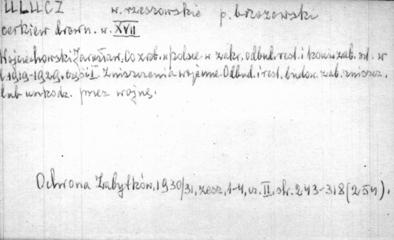 ULUCZ w. rzeszowskie p. brzozowski
cerkiew drewn. w. XVII
Wojciechowski Jarosław, Co zrob. w Polsce w zakr. odbud. rest. i konserw. zab. szt. w
l. 1919-1929. Część I. Zniszczenia wojenne. Odbud. i rest. budow. zab. zniszcz.
lub uszkodz. przez wojnę.
Ochrona Zabytków, 1930/31, zesz. 1-4, cz. II, str. 243-318 (254).